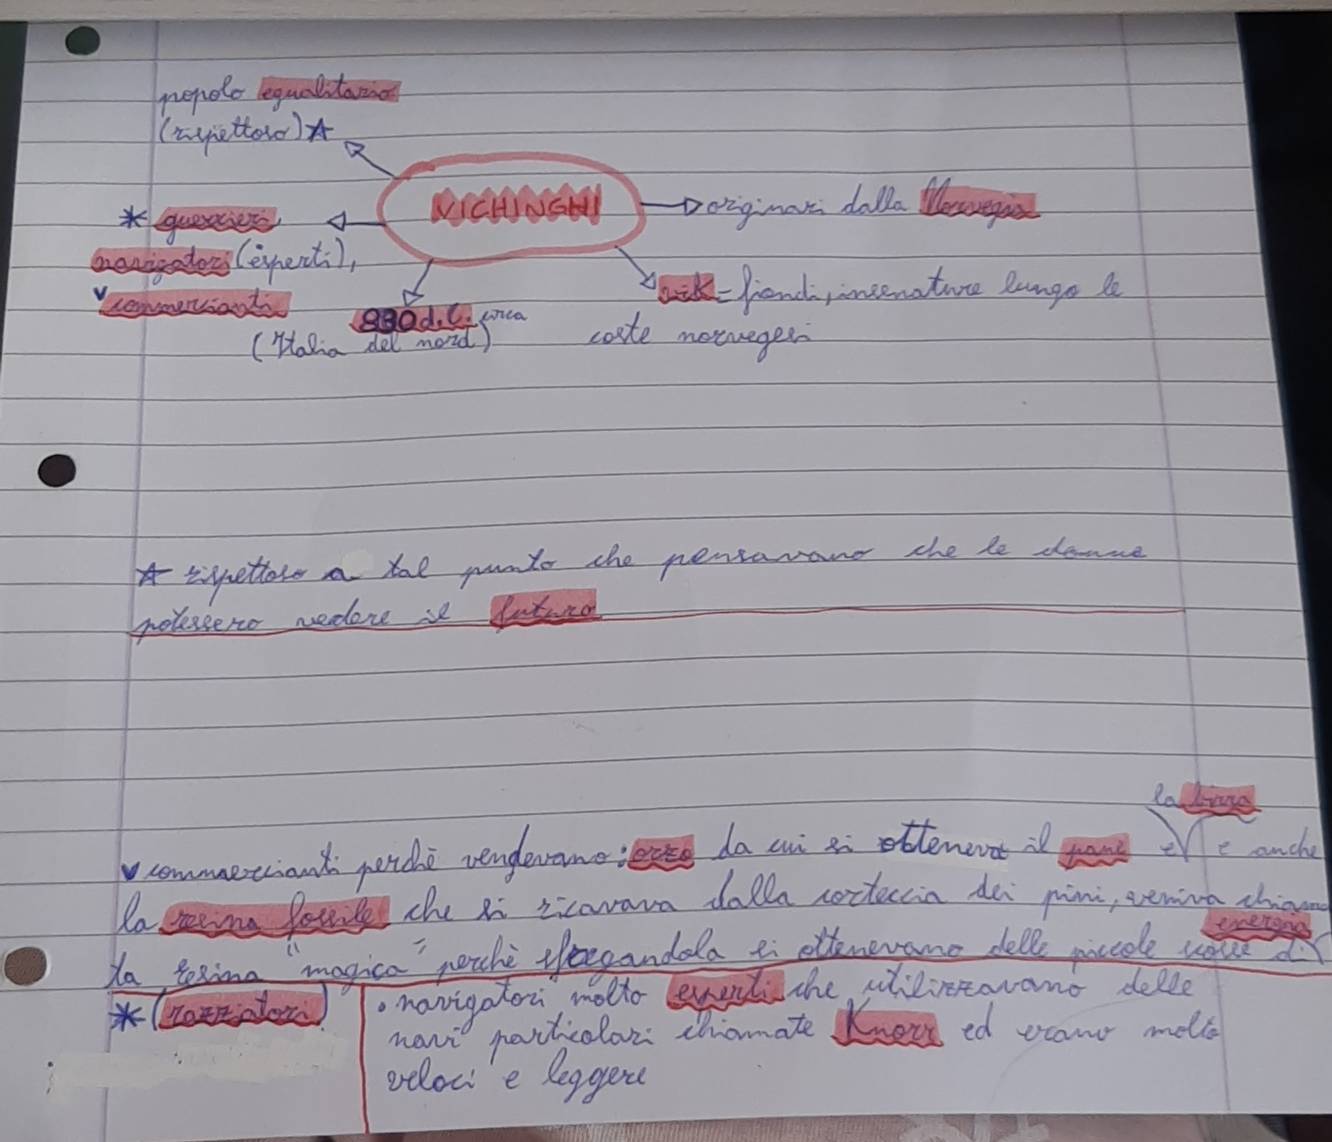 popolo egualitario
(rispettoso) ☆
VICHINGHI
originari dalla Norvegia
* guerrieri,
navigatori (esperti),
v commercianti
vik = fiordi, insenature lungo le
coste norvegesi
880 d.C. circa
(Italia del nord)
☆ rispettoso a tal punto che pensavano che le donne
potessero vedere il futuro
la birra
v commercianti perchè vendevano: orzo da cui si otteneva il pane e e anche
la resina fossile che si ricavava dalla corteccia dei pini, veniva chiama
ta resina "magica" perchè sfregandola si ottenevano delle piccole scosse di
energia
* (razziatori)
• navigatori molto esperti che utilizzavano delle
navi particolari chiamate Knorr ed erano molto
veloci e leggere